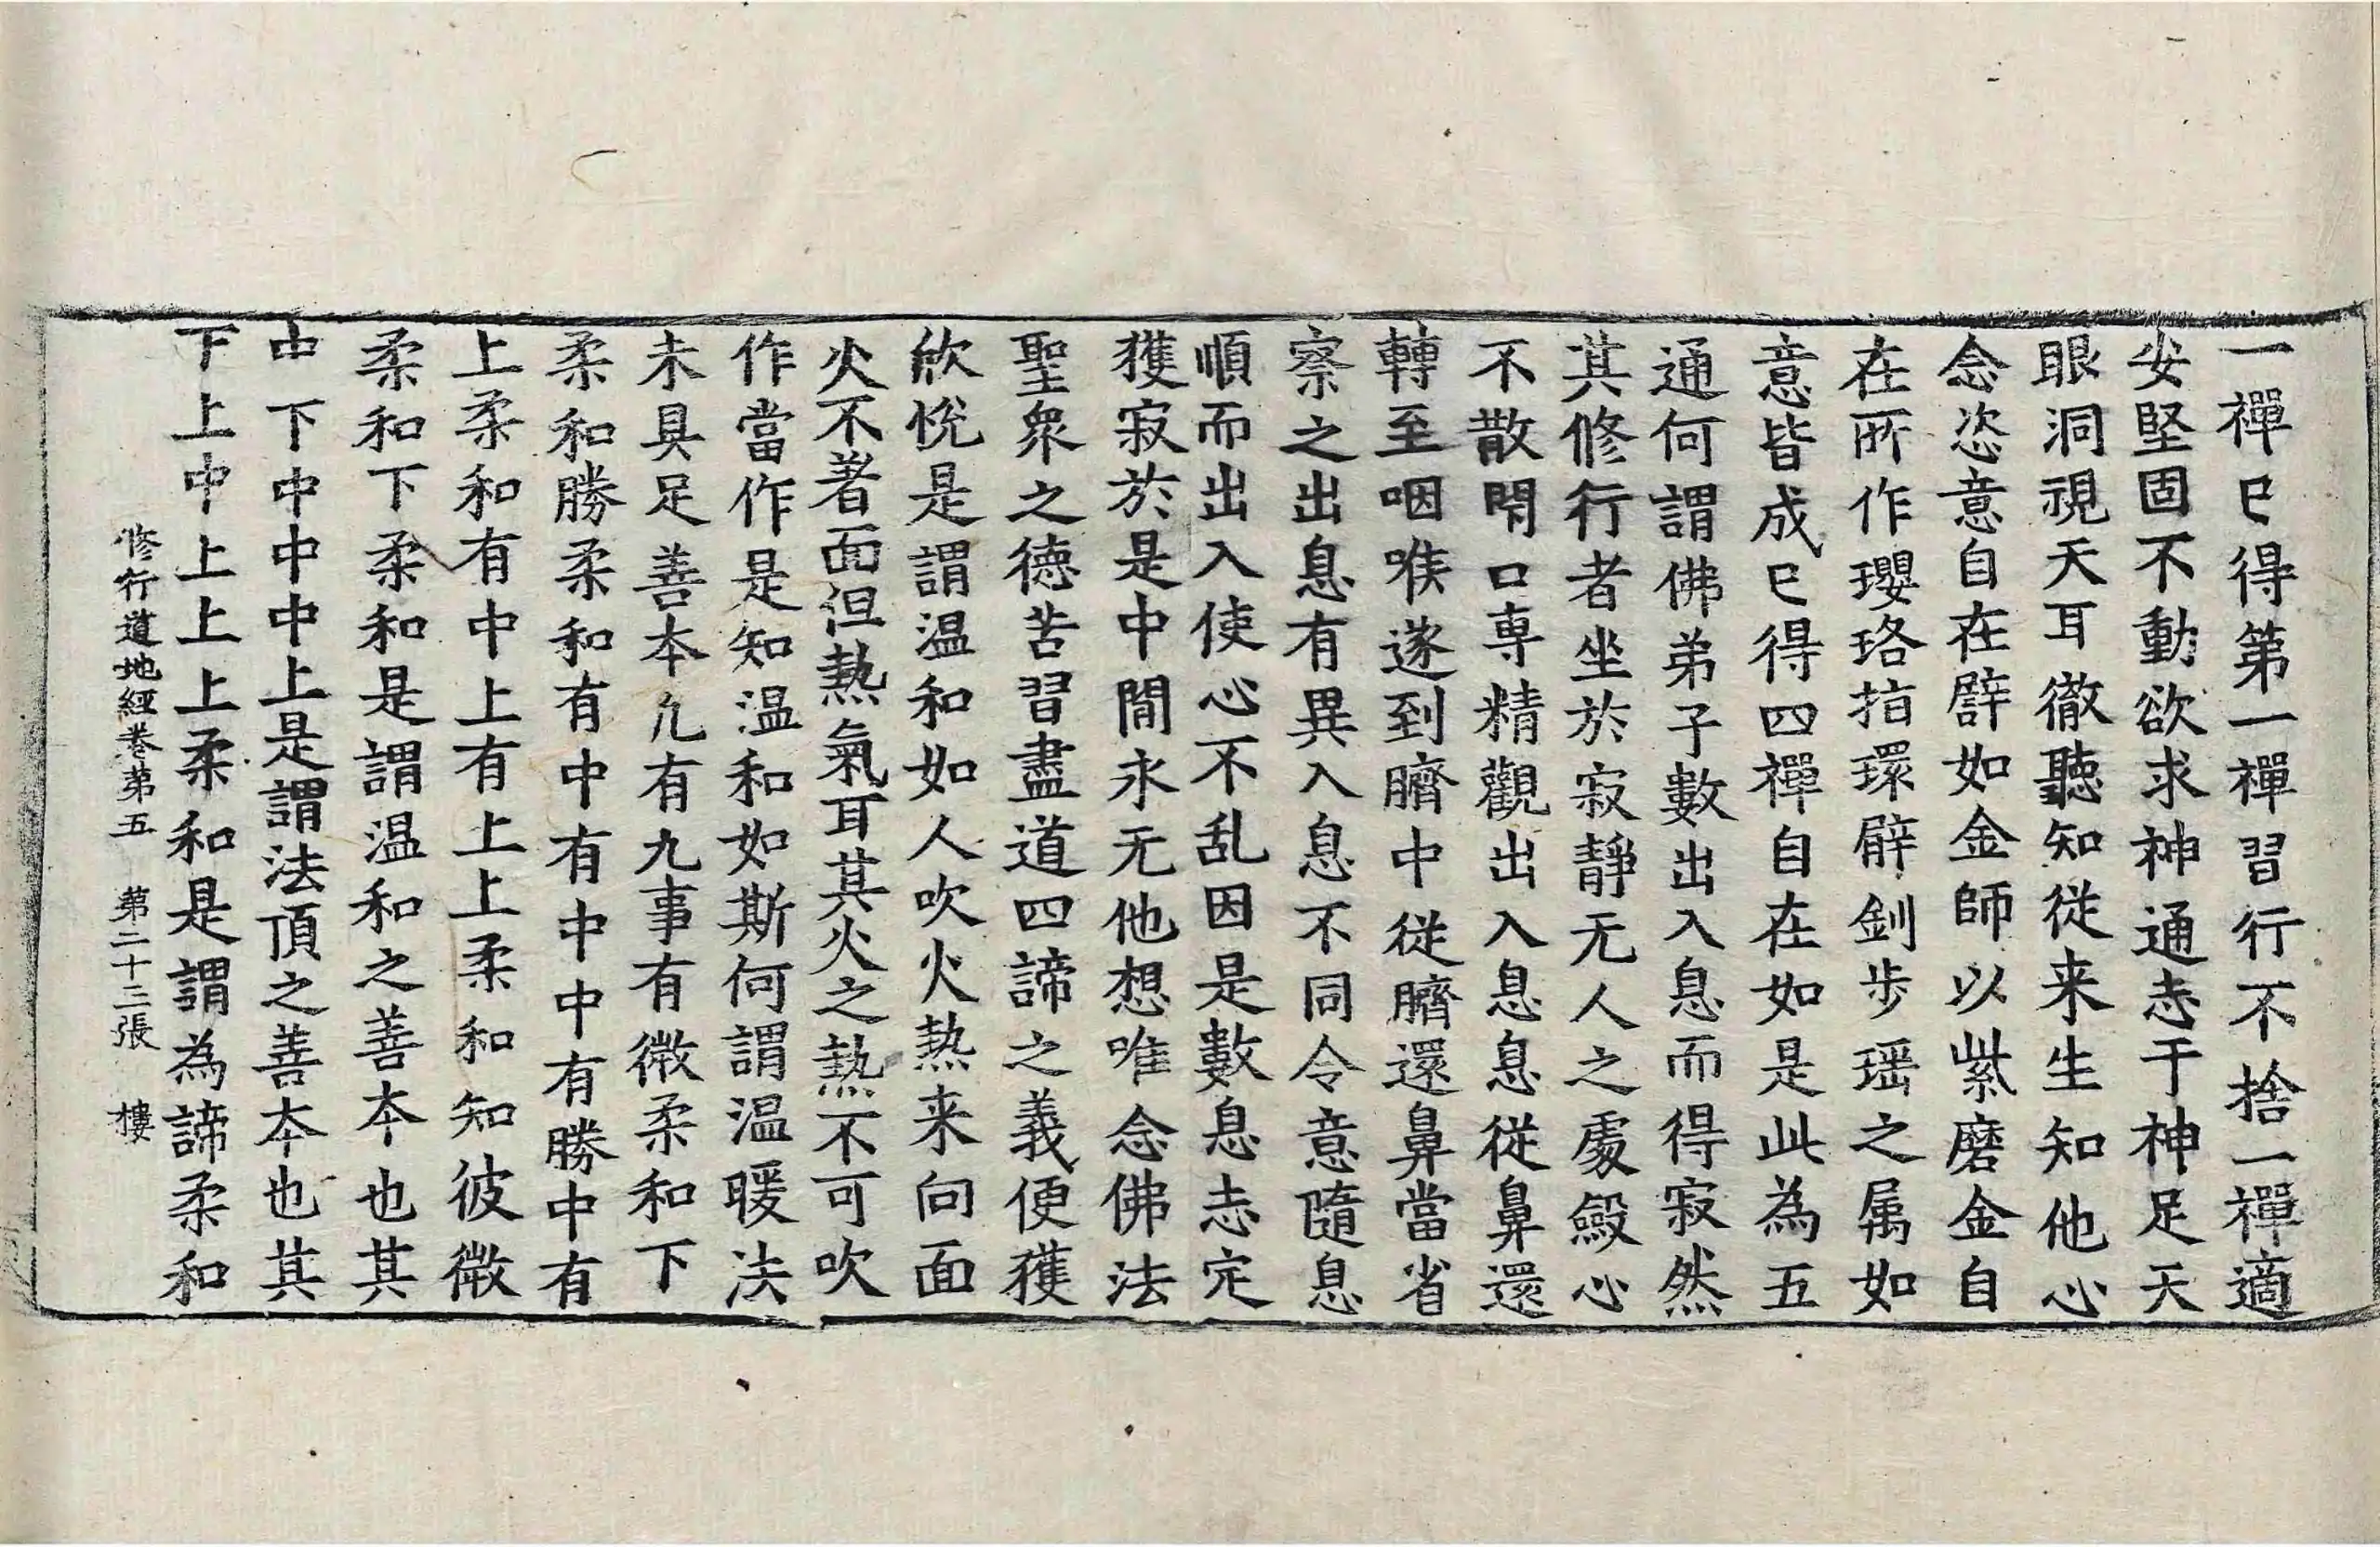 一禪已得第一禪習行不捨一禪適
安堅固不動欲求神通志于神足天
眼洞視天耳徹聽知從来生知他心
念恣意自在譬如金師以紫磨金自
在所作瓔珞指環臂釧步瑶之属如
意皆成已得四禪自在如是此為五
通何謂佛弟子數出入息而得寂然
其修行者坐於寂靜无人之處斂心
不散閇口専精觀出入息息從鼻還
轉至咽喉遂到臍中從臍還鼻當省
察之出息有異入息不同令意隨息
順而出入使心不乱因是數息志定
獲寂於是中間永无他想唯念佛法
聖衆之德苦習盡道四諦之義便獲
欣悅是謂温和如人吹火熱来向面
火不著面但熱氣耳其火之熱不可吹
作當作是知温和如斯何謂温暖法
未具足善本凢有九事有微柔和下
柔和勝柔和有中有中中有勝中有
上柔和有中上有上上柔和知彼微
柔和下柔和是謂温和之善本也其
中下中中中上是謂法頂之善本也其
下上中上上上柔和是謂為諦柔和
修行道地經卷第五 第二十三張 樓